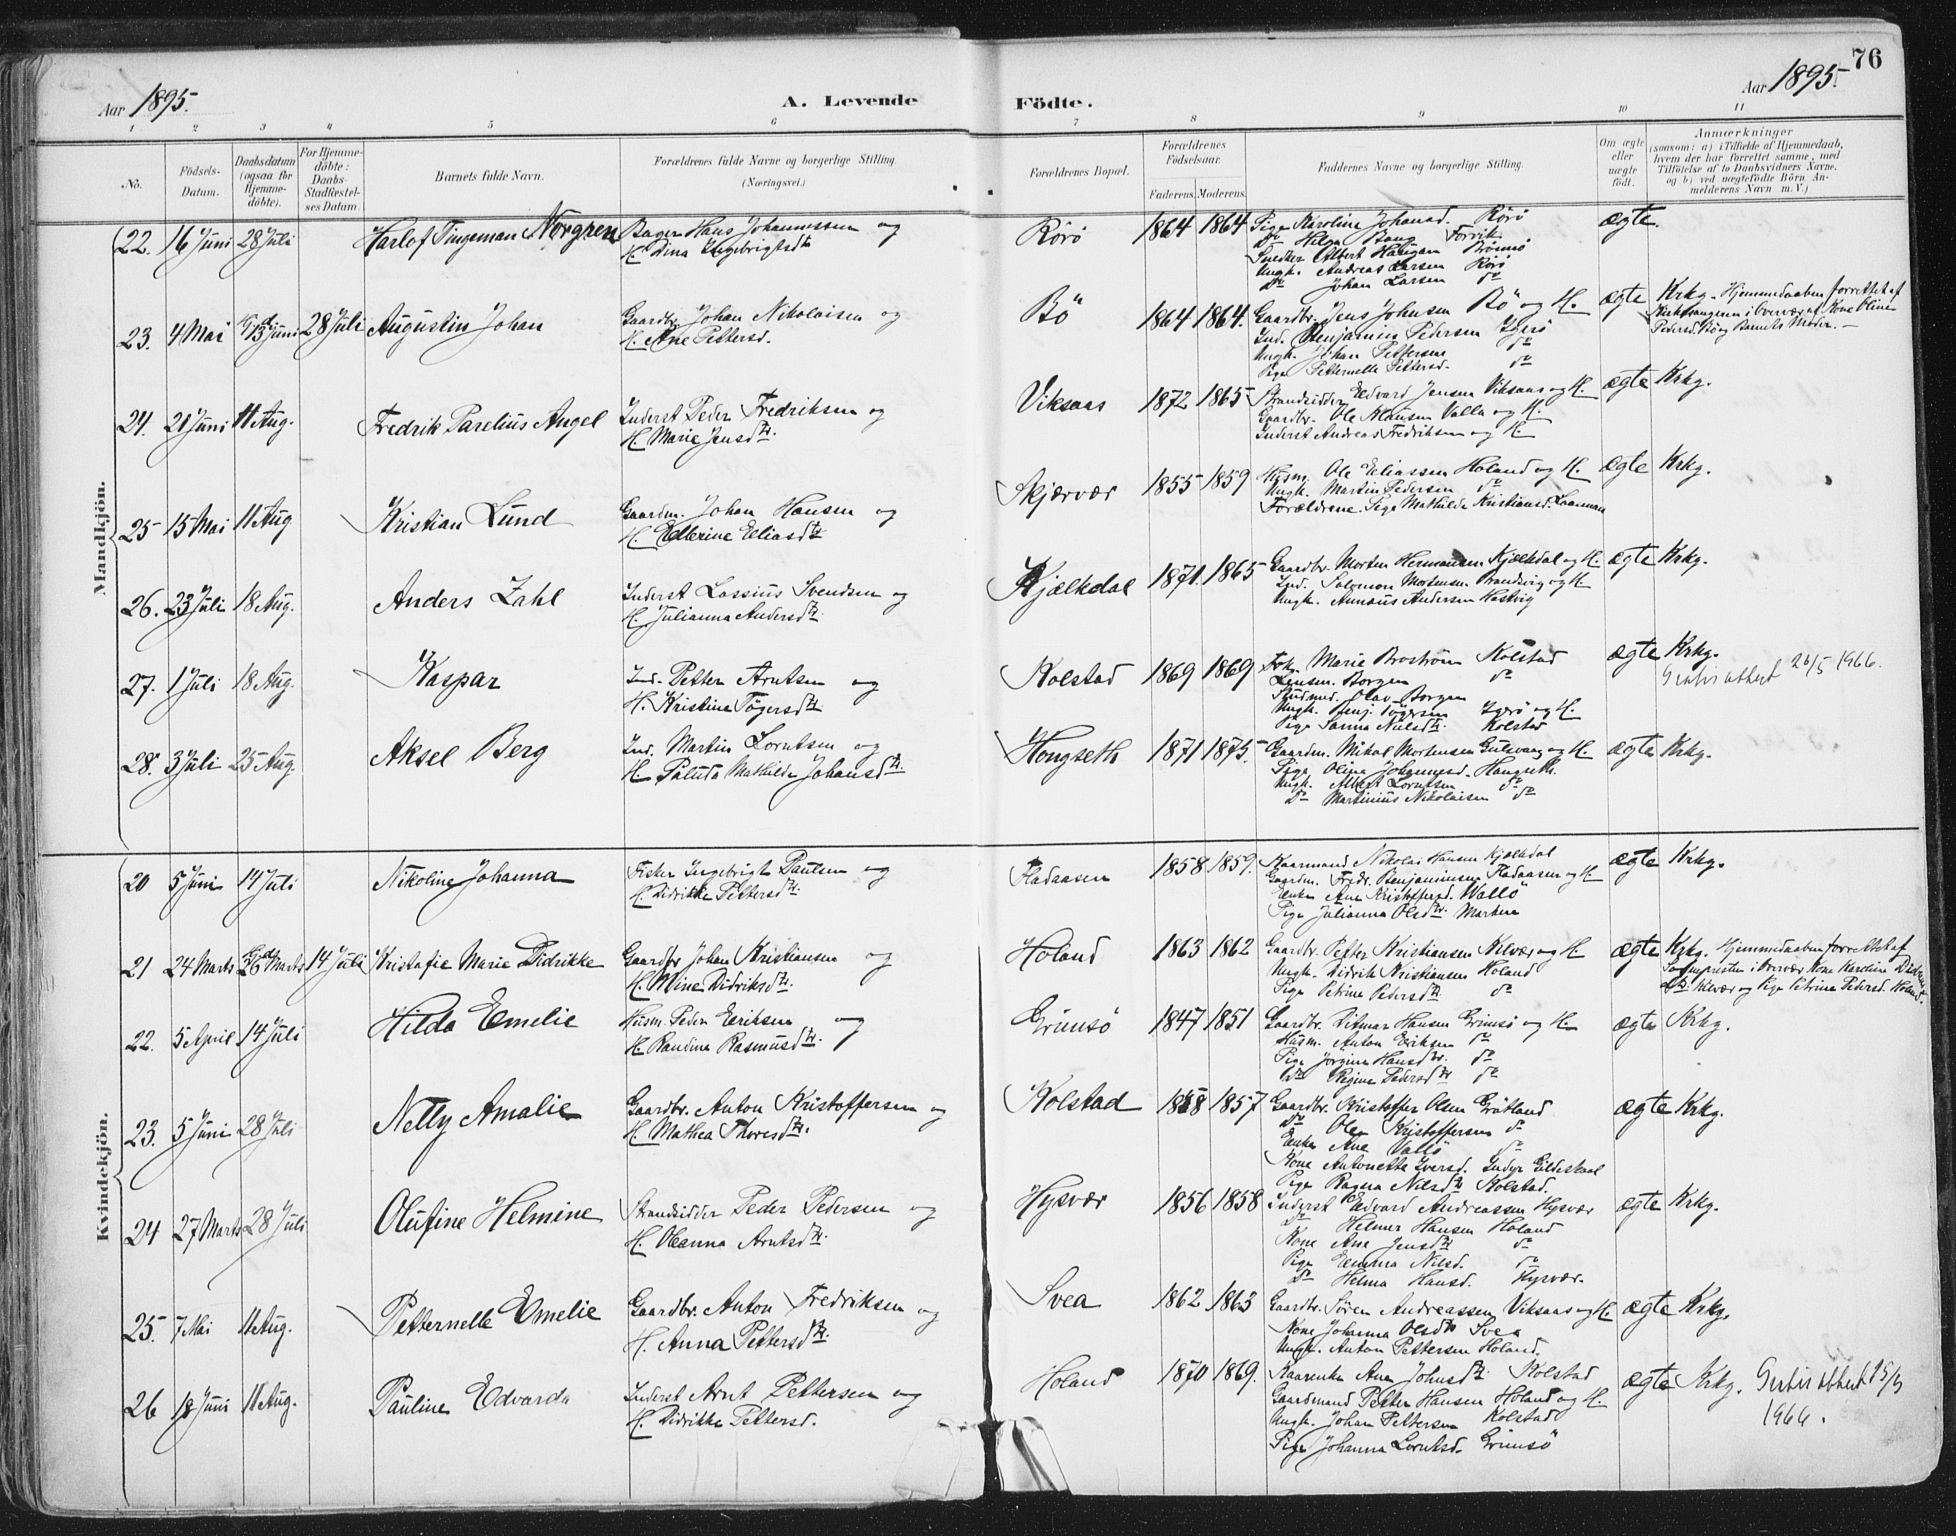 76
Aar 1895.
A. Levende Födte.
Aar 1895.
1 2 3 4 5 6 7 8 9 10 11
No.
Födsels-
Datum.
Daabsdatum
(ogsaa for
Hjemme-
döbte).
For Hjemme-
döbte:
Daabs-
Stadfæstel-
ses Datum.
Barnets fulde Navn.
Forældrenes fulde Navne og borgerlige Stilling.
(Næringsvei.)
Forældrenes Bopæl.
Forældrenes
Födselsaar.
Faderens. Moderens.
Faddernes Navne og borgerlige Stilling.
Om ægte
eller
uægte
födt.
Anmærkninger
(saasom: a) i Tilfælde af Hjemmedaab,
hvem der har forrettet samme, med
Tilföielse af to Daabsvidners Navne,
og b) ved uægtefödte Börn An-
melderens Navn m. V.)
Mandkjön.
22. 16 Juni 28 Juli Harlof Tingeman Norgren
Bager Hans Johannessen og
H. Dina Ingebrigtsdtr
Rörö 1864 1864
Pige Karoline Johansd. Rörö
Do Hilga Bang Forvik
Snedker Albert Haugan Brönnö
Ungk. Andreas Larsen Rörö
Do Johan Larsen do
ægte.
23. 4 Mai 13 Juni 28 Juli Augustin Johan
Gaardbr. Johan Nikolaisen og
H. Ane Pettersd.
Bö 1864 1864.
Gaardbr. Jens Johnsen Bö og H.
Ind. Benjamin Pedersen Ygerö
Ungk. Johan Pettersen do
Pige Petternelle Pettersd. do
ægte Krkg. Hjemmedaaben forrettet af
Kirkesangeren i Overvær af Kone Oline
Pedersd. Bö og Barnets Moder.
24. 21 Juni 11 Aug. Fredrik Parelius Angel
Inderst Peder Fredriksen og
H. Marie Jensdtr.
Viksaas 1872 1865
Strandsidder Edvard Jensen Viksaas og H.
Gaardbr. Ole Klausen Valla og H.
Inderst Andreas Fredriksen og H.
ægte Krkg.
25 15 Mai 11 Aug Kristian Lund
Gaardm. Johan Hansen og
H. Ellerine Eliasdtr
Skjærvær 1855 1859
Husm. Ole Eliassen Holand og H.
Ungk. Martin Pedersen do
Forældrene. Pige Mathilde Kristiansd. Laanan
ægte Krkg.
26. 23 Juli 18 Aug. Anders Zahl
Inderst Lassius Svendsen og
H. Julianna Andersdtr.
Kjælkdal 1871. 1865
Gaardbr. Morten Hermansen Kjælkdal og H.
Ind. Salomon Mortensen Strandvig og H
Ungk. Annæus Andersen Hestvig
ægte Krkg.
27. 1 Juli 18 Aug. Kaspar
Ind. Petter Arntsen og
H. Kristine Tögersdtr.
Kolstad 1869 1869
Frk. Marie Broström Kolstad
Lensm. Borgen do
Studmed. Olav Borgen
Ungk. Benj. Tögersen Ygerö og H.
Pige Sanna Nilsdtr. Kolstad
ægte Krkg.
Gratis attest 26/5 1966.
28. 3 Juli 25 Aug. Aksel Berg
Ind. Martin Lorntsen og
H. Paluda Mathilde Johansdtr.
Hongseth 1871 1875.
Gaardm. Mikal Mortensen Gulvaag og H.
Pige Olina Johannesd. Hongseth.
Ungk. Albert Lorntsen do
Do Martinius Nikolaisen do
ægte Krkg.
Kvindekjön.
20 5 Juni 14 Juli Nikoline Johanna
Fisker Ingebrigt Paulsen og
H. Didrikke Pettersdtr.
Fladaasen 1858 1859.
Kaarmand Nikolai Hansen Kjælkdal
Gaardm. Fredr. Benjaminsen Fladaasen og H
Enken Ane Kristoffersd. Wallö
Pige Julianna Olsdtr.
ægte Krkg.
21 24 Marts 26 Marts 14 Juli Kristofie Marie Didrikke
Gaardbr Johan Kristiansen og
H. Mine Didriksdtr.
Holand 1863 1862
Gaardbr. Petter Kristiansen Kilvær og H
Ungk. Didrik Kristiansen Holand
Pige Petrine Pedersdtr do
ægte Krkg. Hjemmedaaben forrettet af
Sognepresten i Overvær Kone Karoline
Kilvær og Pige Petrine Pedersd. Holand.
22. 5 April 14 Juli Hilda Emelie
Husm. Peder Eriksen og
H. Randina Rasmusdtr.
Grimsö 1847 1851
Gaardbr. Ditmar Hansen Grimsö og H.
Husm. Anton Eriksen do
Pige Jörgine Hansdtr. do
Do Regine Pedersdtr do
ægte Krkg.
23. 5 Juni 28 Juli Nelly Amalie
Gaardbr. Anton Kristoffersen og
H. Mathea Thoresdtr.
Kolstad 1858 1857
Gaardbr. Kristoffer Olsen Grötland
Do Olen Kristoffersen do
Enke Ane Vallö do
Kone Antonette Iversd. Indyr Gildeskaal
Pige Ragna Nilsdtr Kolstad.
ægte Krkg.
24 27 Marts 28 Juli Olufine Helmine
Strandsidder Peder Pedersen og
H. Oleanna Arntsdtr.
Hysvær 1856 1858
Inderst Edvard Andreassen Hysvær
Do Helmer Hansen Holand
Kone Ane Jensdtr do
Pige Emma Nilsd. do
Do Helma Hansd. Hysvær.
ægte Krkg.
25. 7 Mai 11 Aug. Petternelle Emelie
Gaardbr. Anton Fredriksen og
H. Anna Pettersdtr.
Svea 1862 1863
Gaardbr. Sören Andreassen Viksaas og H
Kone Johanna Olsdtr Svea
Ungk. Anton Pettersen Holand.
ægte Krkg.
26 18 Juni 11 Aug. Pauline Edvarda
Inderst Arnt Pettersen og
H. Didrikke Pettersd.
Holand 1870 1869.
Kaarenke Ane Johnsdtr. Kolstad
Gaardmand Petter Hansen Holand og H.
Ungk. Johan Pettersen Kolstad
Pige Johanna Lorntsd. Grimsö
ægte Krkg. Gratis attest 15/3
1966.